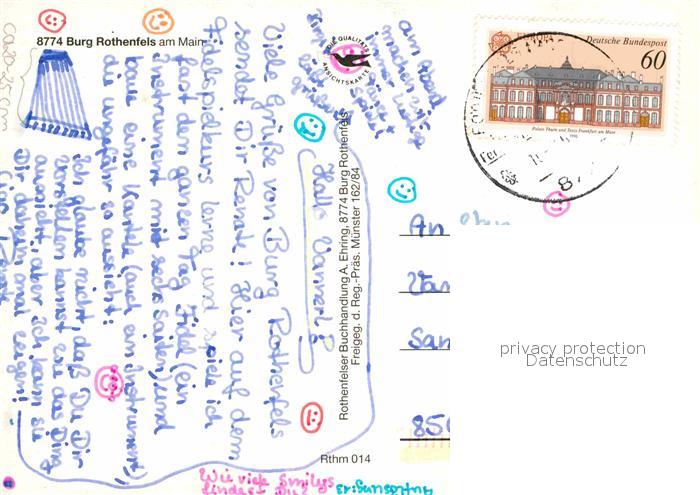 8774 Burg Rothenfels am Main
IN DER QUALITÄTS
ANSICHTSKARTE
Deutsche Bundespost
60
Palais Thurn und Taxis Frankfurt am Main
1990
Hallo Vannerl!
Viele Grüße von Burg Rothenfels
sendet Dir Renate! Hier auf dem
Fidelspielkurs lerne und spiele ich
fast den ganzen Tag Fidel (ein
Instrument mit sechs Saiten) und
eine Kantele (auch ein Instrument),
die ungefähr so aussieht:
Ich glaube nicht, daß Du Dir
vorstellen kannst wie das Ding
aussieht, aber ich kann sie
Dir dann mal zeigen!
ca 20-25 cm
Rothenfelser Buchhandlung A. Ehring, 8774 Burg Rothenfels
Freigeg. d. Reg.-Präs. Münster 162/84
Rthm 014
An
San
850
privacy protection
Datenschutz
Wie viele Smilys
findest Du?
Auflösung: 13